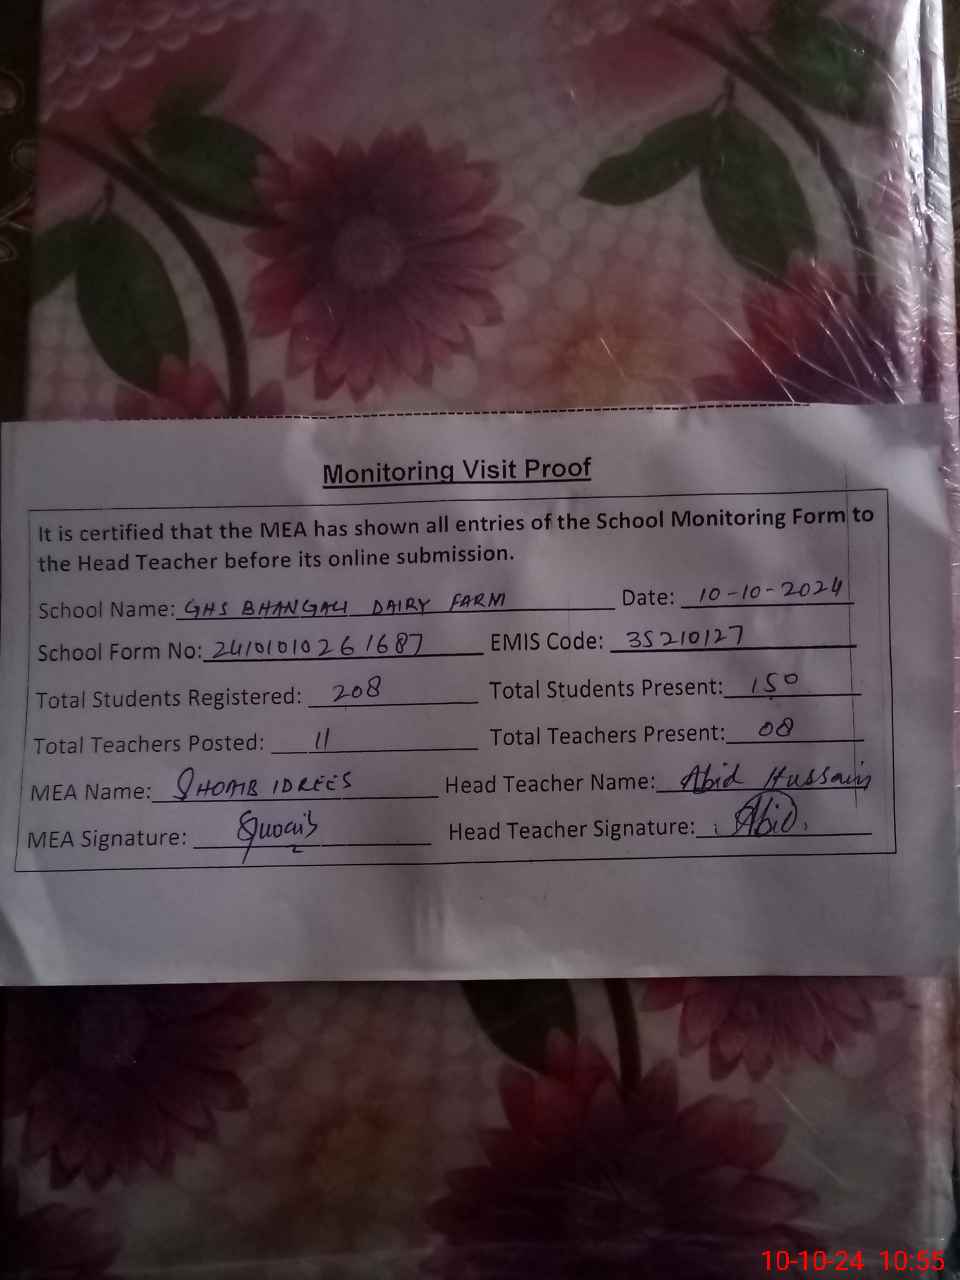 Monitoring Visit Proof
It is certified that the MEA has shown all entries of the School Monitoring Form to
the Head Teacher before its online submission.
School Name: GHS BHANGALI DAIRY FARM Date: 10-10-2024
School Form No: 2410101026 1687 EMIS Code: 35210127
Total Students Registered: 208 Total Students Present: 150
Total Teachers Posted: 11 Total Teachers Present: 08
MEA Name: SHOAIB IDREES Head Teacher Name: Abid Hussain
MEA Signature: Shoaib Head Teacher Signature: Abid
10-10-24 10:55